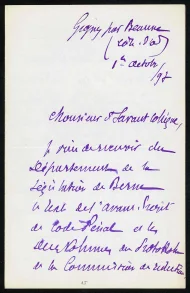 Gigny par Beaune
(Côte d'Or)
1er octobre
/97
Monsieur et savant collègue,
Je viens de recevoir du
Département de la
Législation de Berne
le text de l'avant-Projet
de Code Pénal et les
deux volumes du Protokoll
de la Commission de rédaction